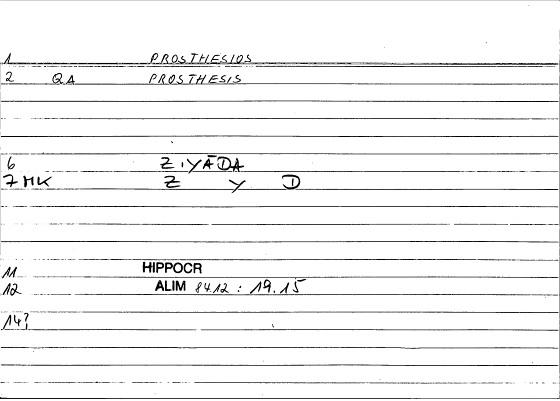 1 PROSTHESIOS
2 QA PROSTHESIS
6 Z.IYĀDA
7 MK Z Y D
11 HIPPOCR
12 ALIM 84.12 : 19.15
14?